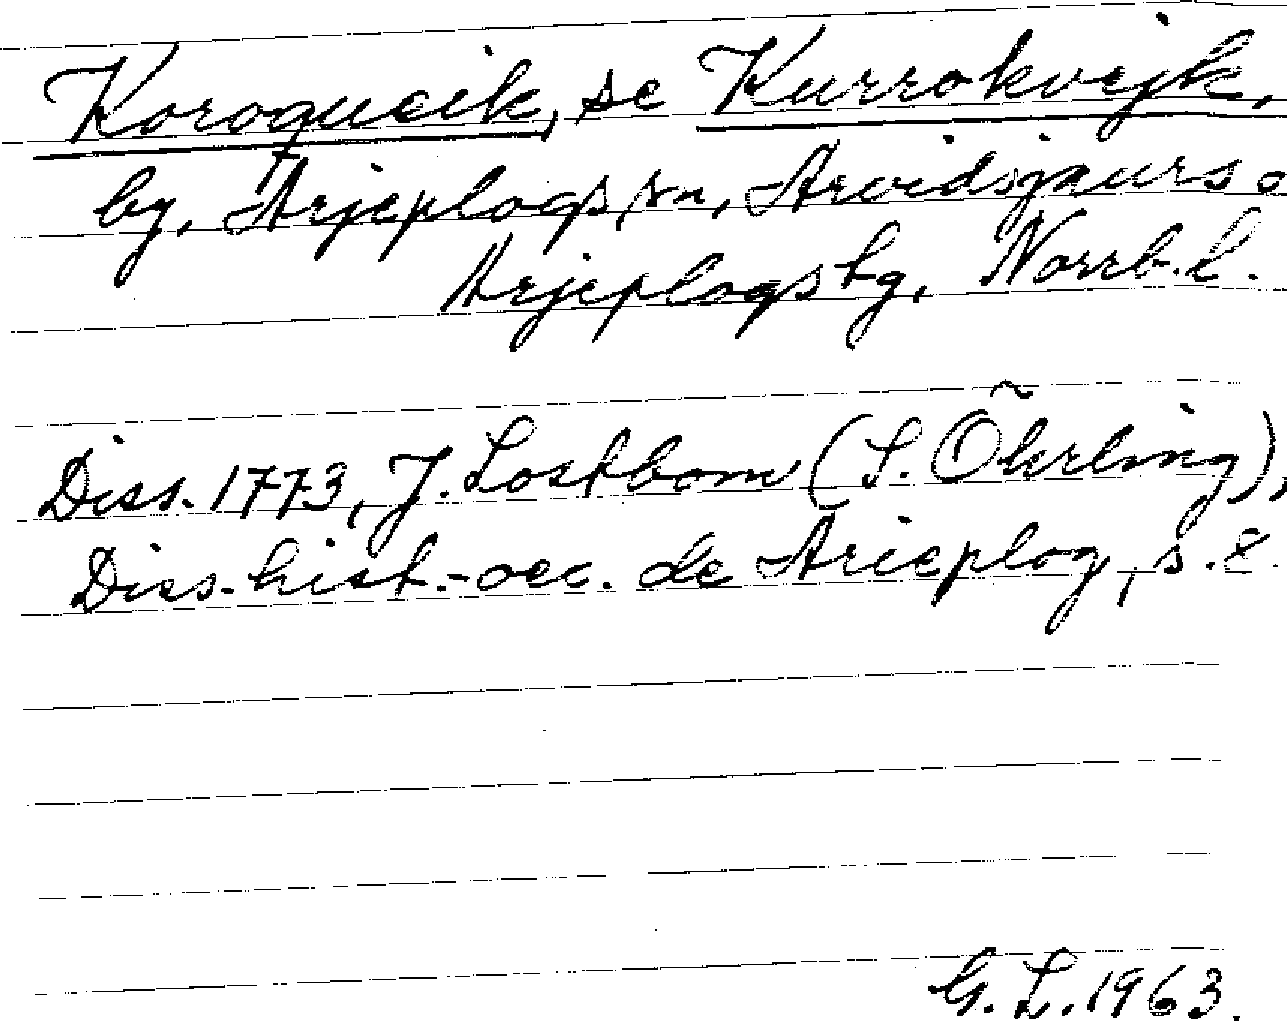 Koroqueik, se Kurrokvejk,
by, Arjeplogs sn, Arvidsjaurs o
Arjeplogs tg, Norrb. l.
Diss. 1773, J. Lostbom (S. Õhrling),
Diss. hist.-oec. de Arieplog, s. 8.
G. L. 1963.